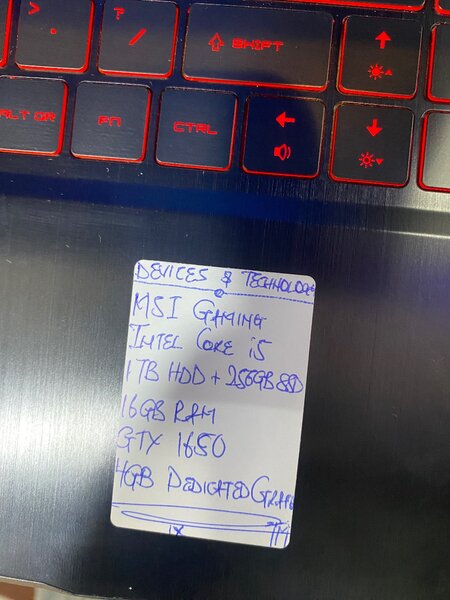 > ? SHIFT ↑
. /
ALT GR FN CTRL ← ↓
DEVICES & TECHNOLOG
MSI GAMING
INTEL CORE i5
1TB HDD + 256GB SSD
16GB RAM
GTX 1650
4GB DEDICATED GRAPH